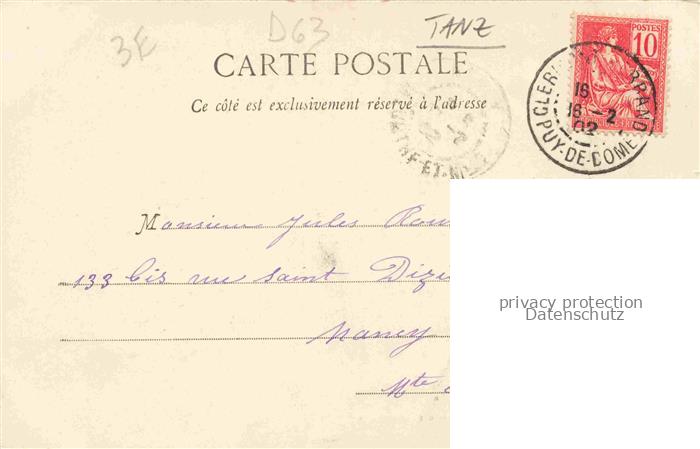 3E D63 TANZ
CARTE POSTALE
Ce côté est exclusivement réservé à l'adresse
POSTES
10
CLER RRAND
16
16 -2
02
PUY-DE-DOME
ET-M
Monsieur Jules Rou
133 bis rue Saint Dizi
Nancy
Mte
privacy protection
Datenschutz